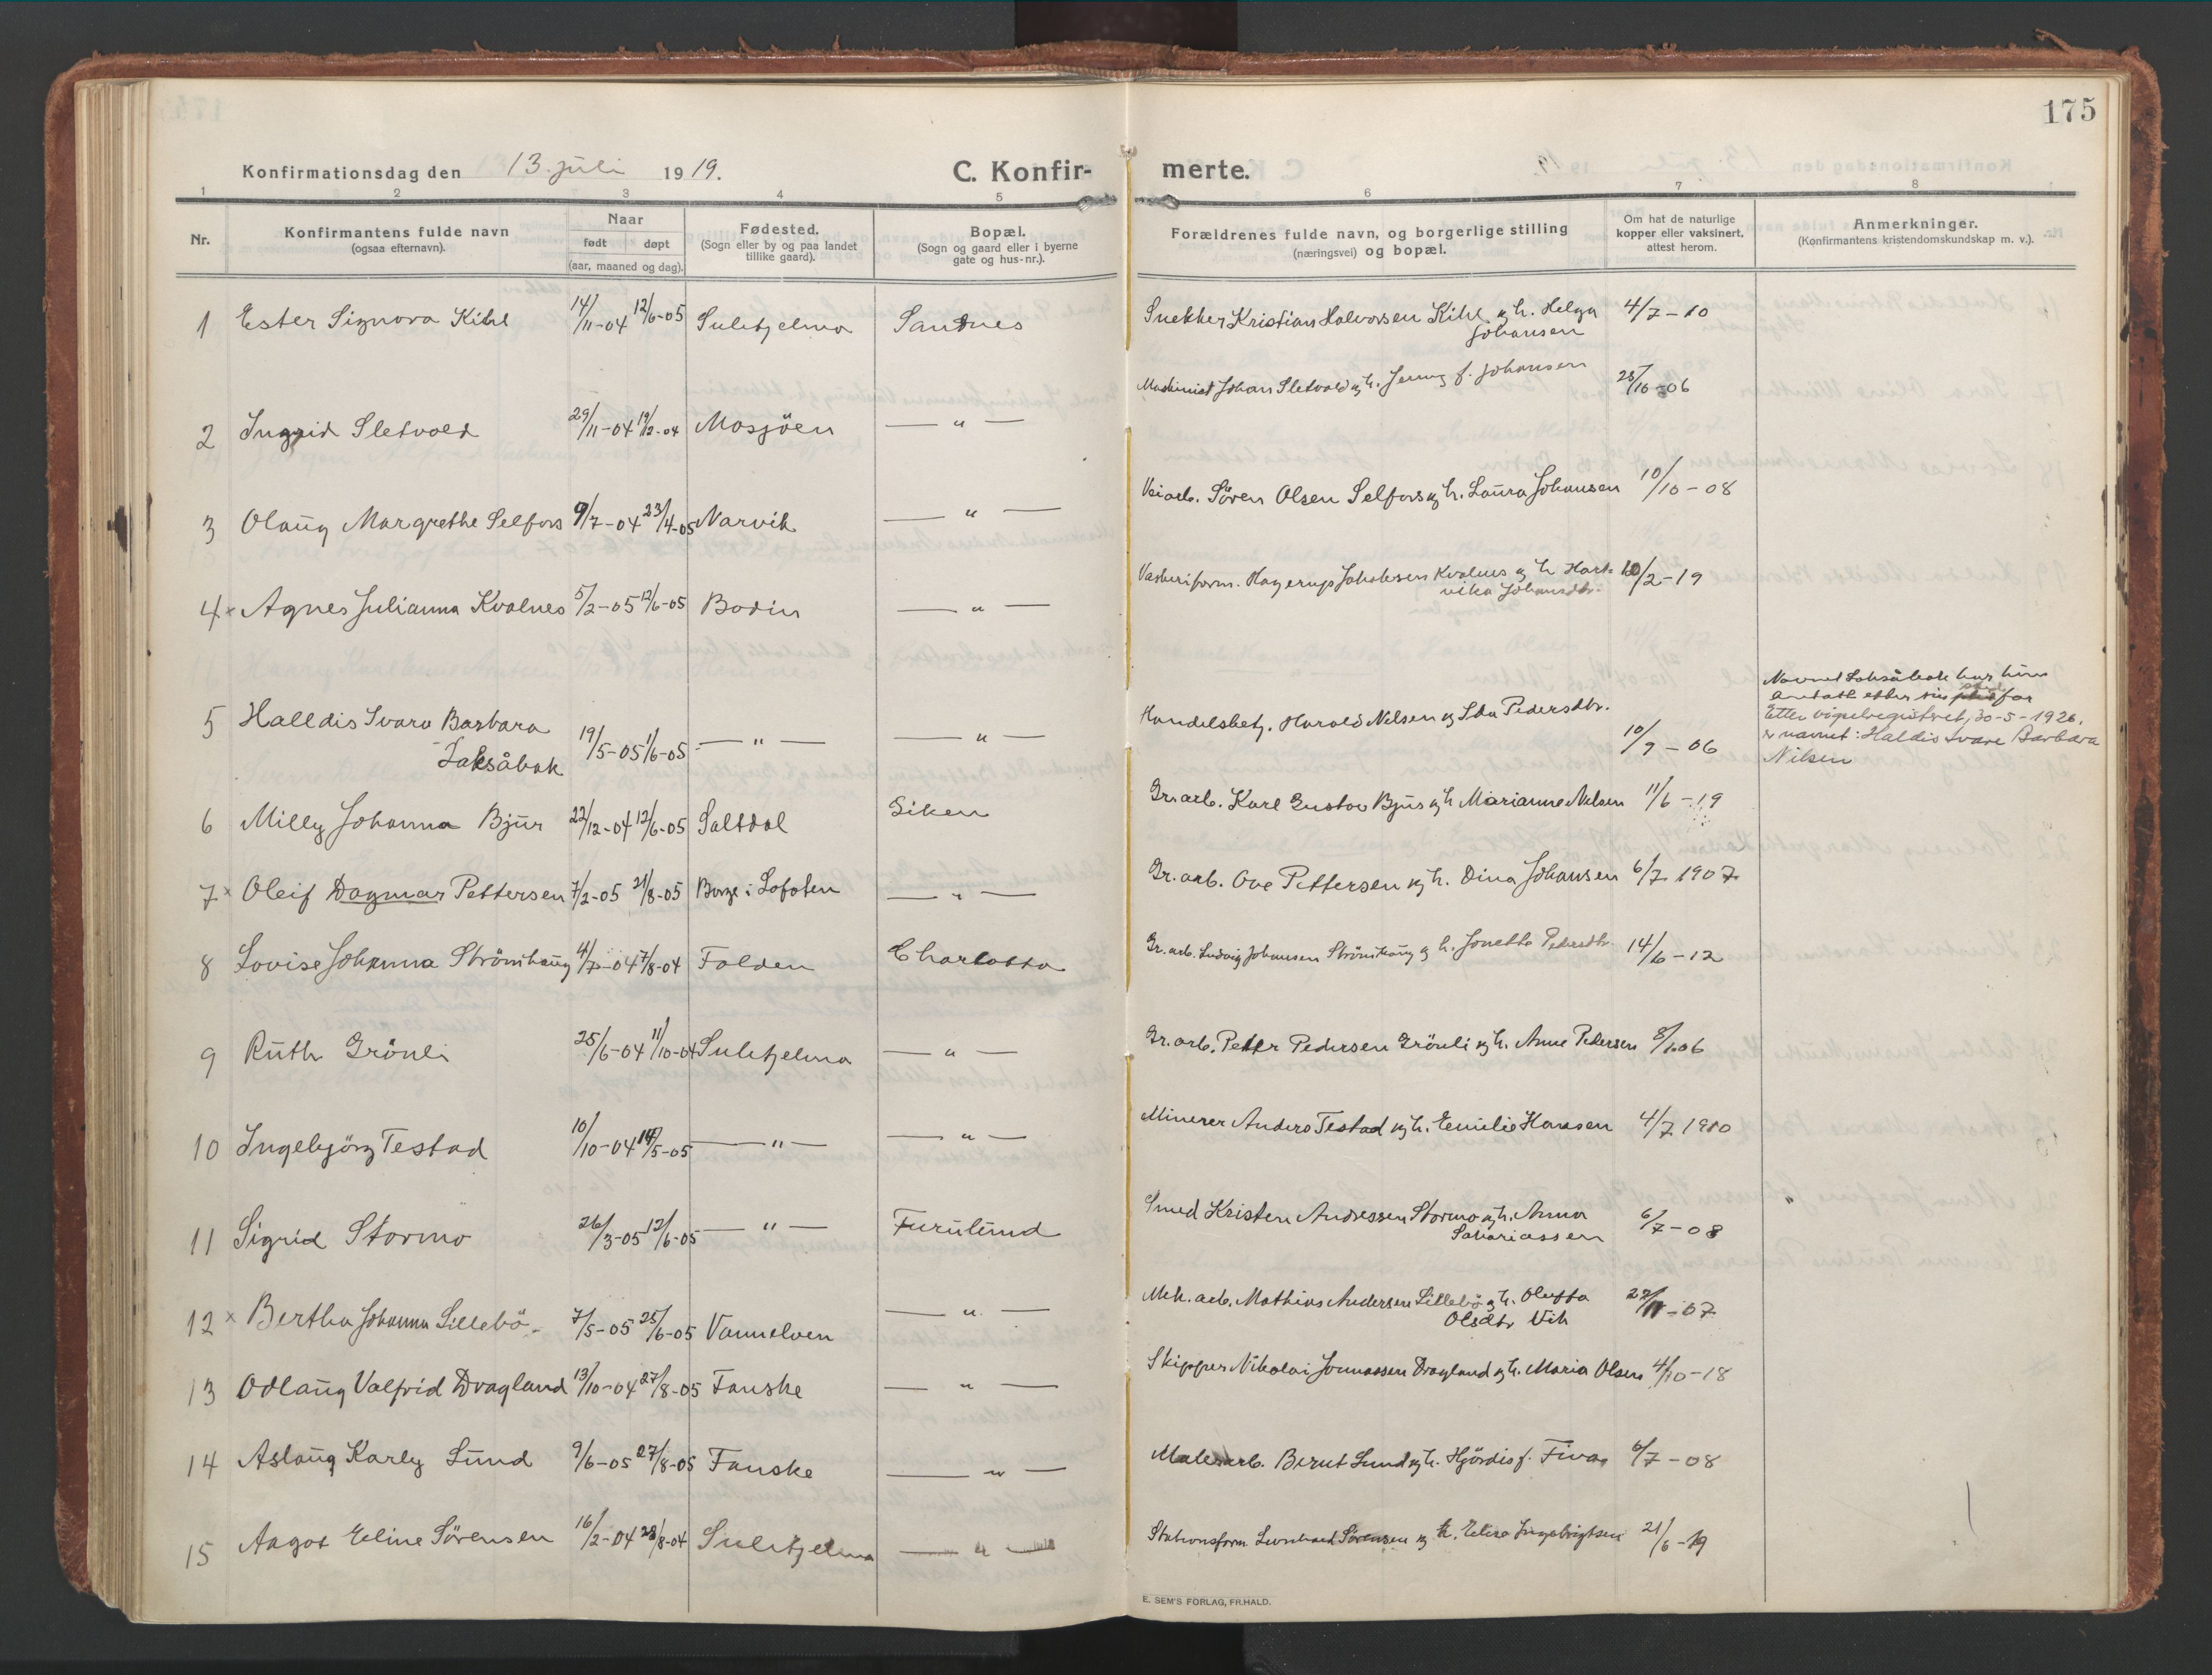 175
Konfirmationsdag den 13. juli 1919.
C. Konfir-
merte.
1 2 3 4 5 6 7 8
Nr.
Konfirmantens fulde navn
(ogsaa efternavn).
Naar
født døpt
(aar, maaned og dag).
Fødested.
(Sogn eller by og paa landet
tillike gaard).
Bopæl.
(Sogn og gaard eller i byerne
gate og hus-nr.).
Forældrenes fulde navn, og borgerlige stilling
(næringsvei) og bopæl.
Om hat de naturlige
kopper eller vaksinert,
attest herom.
Anmerkninger.
(Konfirmantens kristendomskundskap m. v.).
1 Ester Signora Kihl 14/11-04 12/6-05 Sulitjelma Sandnes Snekker Kristian Halvorsen Kihl og h. Helga 4/7-10
Johansen
2 Ingrid Sletvold 29/11-04 19/12-04 Mosjöen — " — Maskinist Johan Sletvold og h. Jenny f. Johansen 25/10-06
3 Olaug Margrethe Selfors 9/7-04 23/4-05 Narvik — " — Veiarb. Sören Olsen Selfors og h. Laura Johansen 10/10-08
4 x Agnes Julianna Kvalnes 5/2-05 12/6-05 Bodin — " — Vaskeriform. Hagerup Jakobsen Kvalnes og h Hart- 10/2-19
vika Johansdtr.
5 Halldis Svara Barbara
Laksåbak 19/5-05 11/6-05 — " — — " — Handelsbetj. Harald Nilsen og Ida Pedersdtr. 10/9-06
Navnet Laksåbak har hun
antatt etter sin far
Etter dåpsregistret, 30-5-1926,
er navnet: Haldis Svare Barbara
Nilsen
6 Milly Johanna Bjur 22/12-04 12/6-05 Saltdal Giken Gr.arb. Karl Gustav Bjur og h Marianne Nilsen 11/6-19
7 x Oleif Dagmar Pettersen 7/2-05 21/8-05 Borge i Lofoten — " — Gr. arb. Ove Pettersen og h. Dina Johansen 6/7 1907
8 Lovise Johanna Strömhaug 4/7-04 7/8-04 Folden Charlotta Gr. arb. Ludvig Johansen Strömhaug og h. Jonetta Pedersdtr. 14/6-12
9 Ruth Grönli 25/6-04 11/10-04 Sulitjelma — " — Gr. arb. Petter Pedersen Grönli og h. Anne Pedersen 8/1.06
10 Ingebjörg Testad 10/10-04 14/5-05 — " — — " — Minerer Anders Testad og h. Emilie Hansen 4/7 1910
11 Sigrid Stormo 26/3-05 12/6-05 — " — Furulund Smed Kristen Andressen Stormo og h. Anna 6/7-08
Sakariassen
12 x Bertha Johanna Lillebö 7/5-05 25/6-05 Vannelven — " — Mek. arb. Mathias Andersen Lillebö og h. Oluffa 22/11-07
Olsdtr Vik
13 Odlaug Valfrid Dragland 13/10-04 27/8-05 Fauske — " — Skipper Nikolai Jonnassen Dragland og h. Maria Olsen 4/10-18
14 Aslaug Karly Lund 9/6-05 27/8-05 Fauske — " — Malerarb. Bernt Lund og h. Hjördis f. Fivas 6/7-08
15 Aagot Eline Sörensen 16/2-04 28/8-04 Sulitjelma — " — Stationsform Leonhard Sörensen og h. Elise Ingebrigtsen 21/6-19
E. SEM'S FORLAG, FR.HALD.